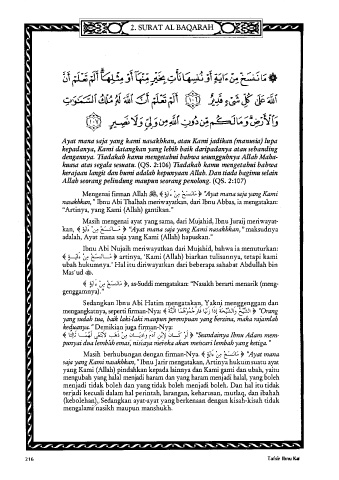 2. SURAT AL BAQARAH
۞ مَا نَنسَخْ مِنْ ءَايَةٍ أَوْ نُنسِهَا نَأْتِ بِخَيْرٍ مِّنْهَا أَوْ مِثْلِهَا أَلَمْ تَعْلَمْ أَنَّ
ٱللَّهَ عَلَىٰ كُلِّ شَىْءٍ قَدِيرٌ ﴿١٠٦﴾ أَلَمْ تَعْلَمْ أَنَّ ٱللَّهَ لَهُۥ مُلْكُ ٱلسَّمَـٰوَٰتِ
وَٱلْأَرْضِ وَمَا لَكُم مِّن دُونِ ٱللَّهِ مِن وَلِىٍّ وَلَا نَصِيرٍ ﴿١٠٧﴾
Ayat mana saja yang kami nasakhkan, atau Kami jadikan (manusia) lupa
kepadanya, Kami datangkan yang lebih baik daripadanya atau sebanding
dengannya. Tiadakah kamu mengetahui bahwa sesungguhnya Allah Maha-
kuasa atas segala sesuatu. (QS. 2:106) Tiadakah kamu mengetahui bahwa
kerajaan langit dan bumi adalah kepunyaan Allah. Dan tiada bagimu selain
Allah seorang pelindung maupun seorang penolong. (QS. 2:107)
Mengenai firman Allah ﷻ, ﴿ مَا نَنسَخْ مِنْ ءَايَةٍ ﴾ "Ayat mana saja yang Kami
nasakhkan," Ibnu Abi Thalhah meriwayatkan, dari Ibnu Abbas, ia mengatakan:
"Artinya, yang Kami (Allah) gantikan."
Masih mengenai ayat yang sama, dari Mujahid, Ibnu Juraij meriwayat-
kan, ﴿ مَا نَنسَخْ مِنْ ءَايَةٍ ﴾ "Ayat mana saja yang Kami nasakhkan," maksudnya
adalah, Ayat mana saja yang Kami (Allah) hapuskan."
Ibnu Abi Nujaih meriwayatkan dari Mujahid, bahwa ia menuturkan:
﴿ مَا نَنسَخْ مِنْ ءَايَةٍ ﴾ artinya, 'Kami (Allah) biarkan tulisannya, tetapi kami
ubah hukumnya.' Hal itu diriwayatkan dari beberapa sahabat Abdullah bin
Mas'ud
﴿ مَا نَنسَخْ مِنْ ءَايَةٍ ﴾, as-Suddi mengatakan: "Nasakh berarti menarik (meng-
genggamnya)."
Sedangkan Ibnu Abi Hatim mengatakan, Yakni menggenggam dan
mengangkatnya, seperti firman-Nya: ﴿ الشَّيْخُ وَالشَّيْخَةُ إِذَا زَنَيَا فَارْجُمُوهُمَا الْبَتَّةَ ﴾ "Orang
yang sudah tua, baik laki-laki maupun perempuan yang berzina, maka rajamlah
keduanya." Demikian juga firman-Nya:
﴿ لَوْ كَانَ لِابْنِ آدَمَ وَادِيَانِ مِنْ ذَهَبٍ لَابْتَغَى لَهُمَا ثَالِثًا ﴾ "Seandainya Ibnu Adam mem-
punyai dua lembah emas, niscaya mereka akan mencari lembah yang ketiga."
Masih berhubungan dengan firman-Nya ﴿ مَا نَنسَخْ مِنْ ءَايَةٍ ﴾ "Ayat mana
saja yang Kami nasakhkan," Ibnu Jarir mengatakan, Artinya hukum suatu ayat
yang Kami (Allah) pindahkan kepada lainnya dan Kami ganti dan ubah, yaitu
mengubah yang halal menjadi haram dan yang haram menjadi halal, yang boleh
menjadi tidak boleh dan yang tidak boleh menjadi boleh. Dan hal itu tidak
terjadi kecuali dalam hal perintah, larangan, keharusan, mutlaq, dan ibahah
(kebolehan). Sedangkan ayat-ayat yang berkenaan dengan kisah-kisah tidak
mengalami nasikh maupun manshukh.
216
Tafsir Ibnu